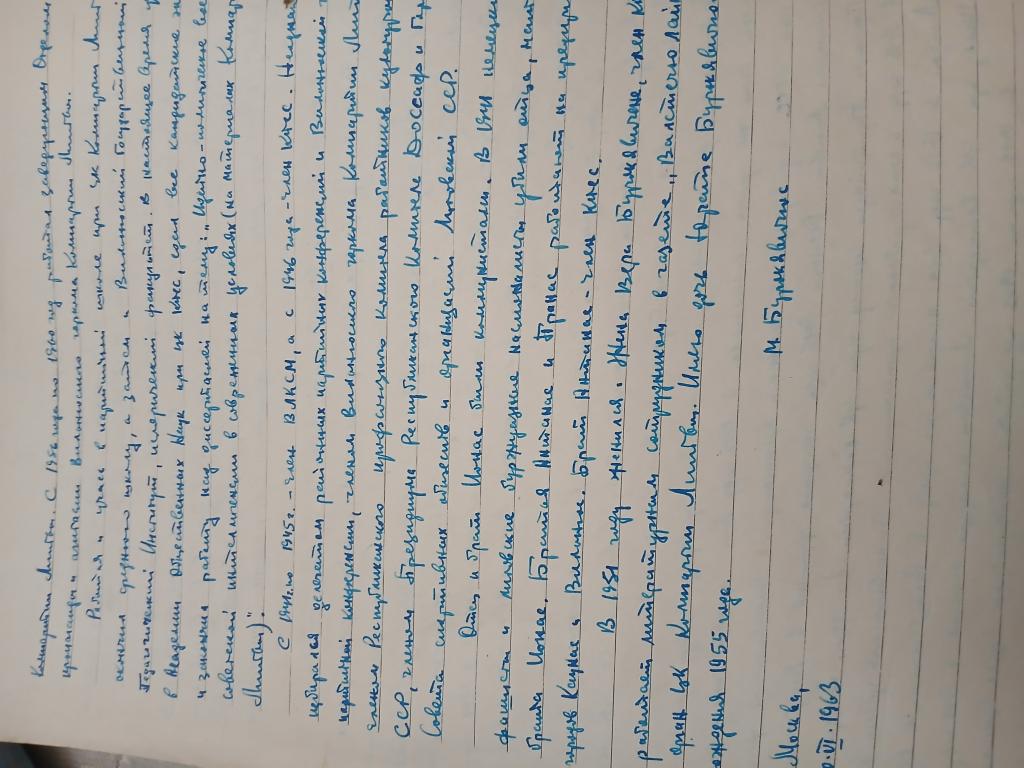 Компартии Литвы. С 1956 года по 1960 год работал заведующим Отделом
пропаганды и агитации Вильнюсского горкома Компартии Литвы.
Работая и учась в партийной школе при ЦК Компартии Лит
окончил среднюю школу, а затем и Вильнюсский Государственный
Педагогический Институт, исторический факультет. В настоящее время
в Академии Общественных Наук при ЦК КПСС, сдал все кандидатские
и закончил работу над диссертацией на тему: „Идейно-
советской интеллигенции в современных условиях (на материалах Компар
Литвы)".
С 1941 по 1945 г. - член ВЛКСМ, а с 1946 года - член КПСС. Неоднок
избирался делегатом районных партийных конференций и Вильнюсской
партийной конференции, членом Вильнюсского горкома Компартии Лит
членом Республиканского профсоюзного комитета работников культуры
ССР, членом Президиума Республиканского Комитета ДОСААФ и
Совета спортивных обществ и организаций Литовской ССР.
Отец и брат Ионас были коммунистами. В 1941 немецкие
фашисты и литовские буржуазные националисты убили отца, мать
брата Ионас. Братья Антанас и Пранас работают на предпри
городов Каунас и Вильнюс. Брат Антанас - член КПСС.
В 1951 году женился. Жена Вера Буркявичене, член К
работает литературным сотрудником в газете „Валстечю лай
орган ЦК Компартии Литвы. Имею дочь Бируте Буркявичюте
ождения 1955 года.
М. Буркявичюс
Москва,
0.VI.1963